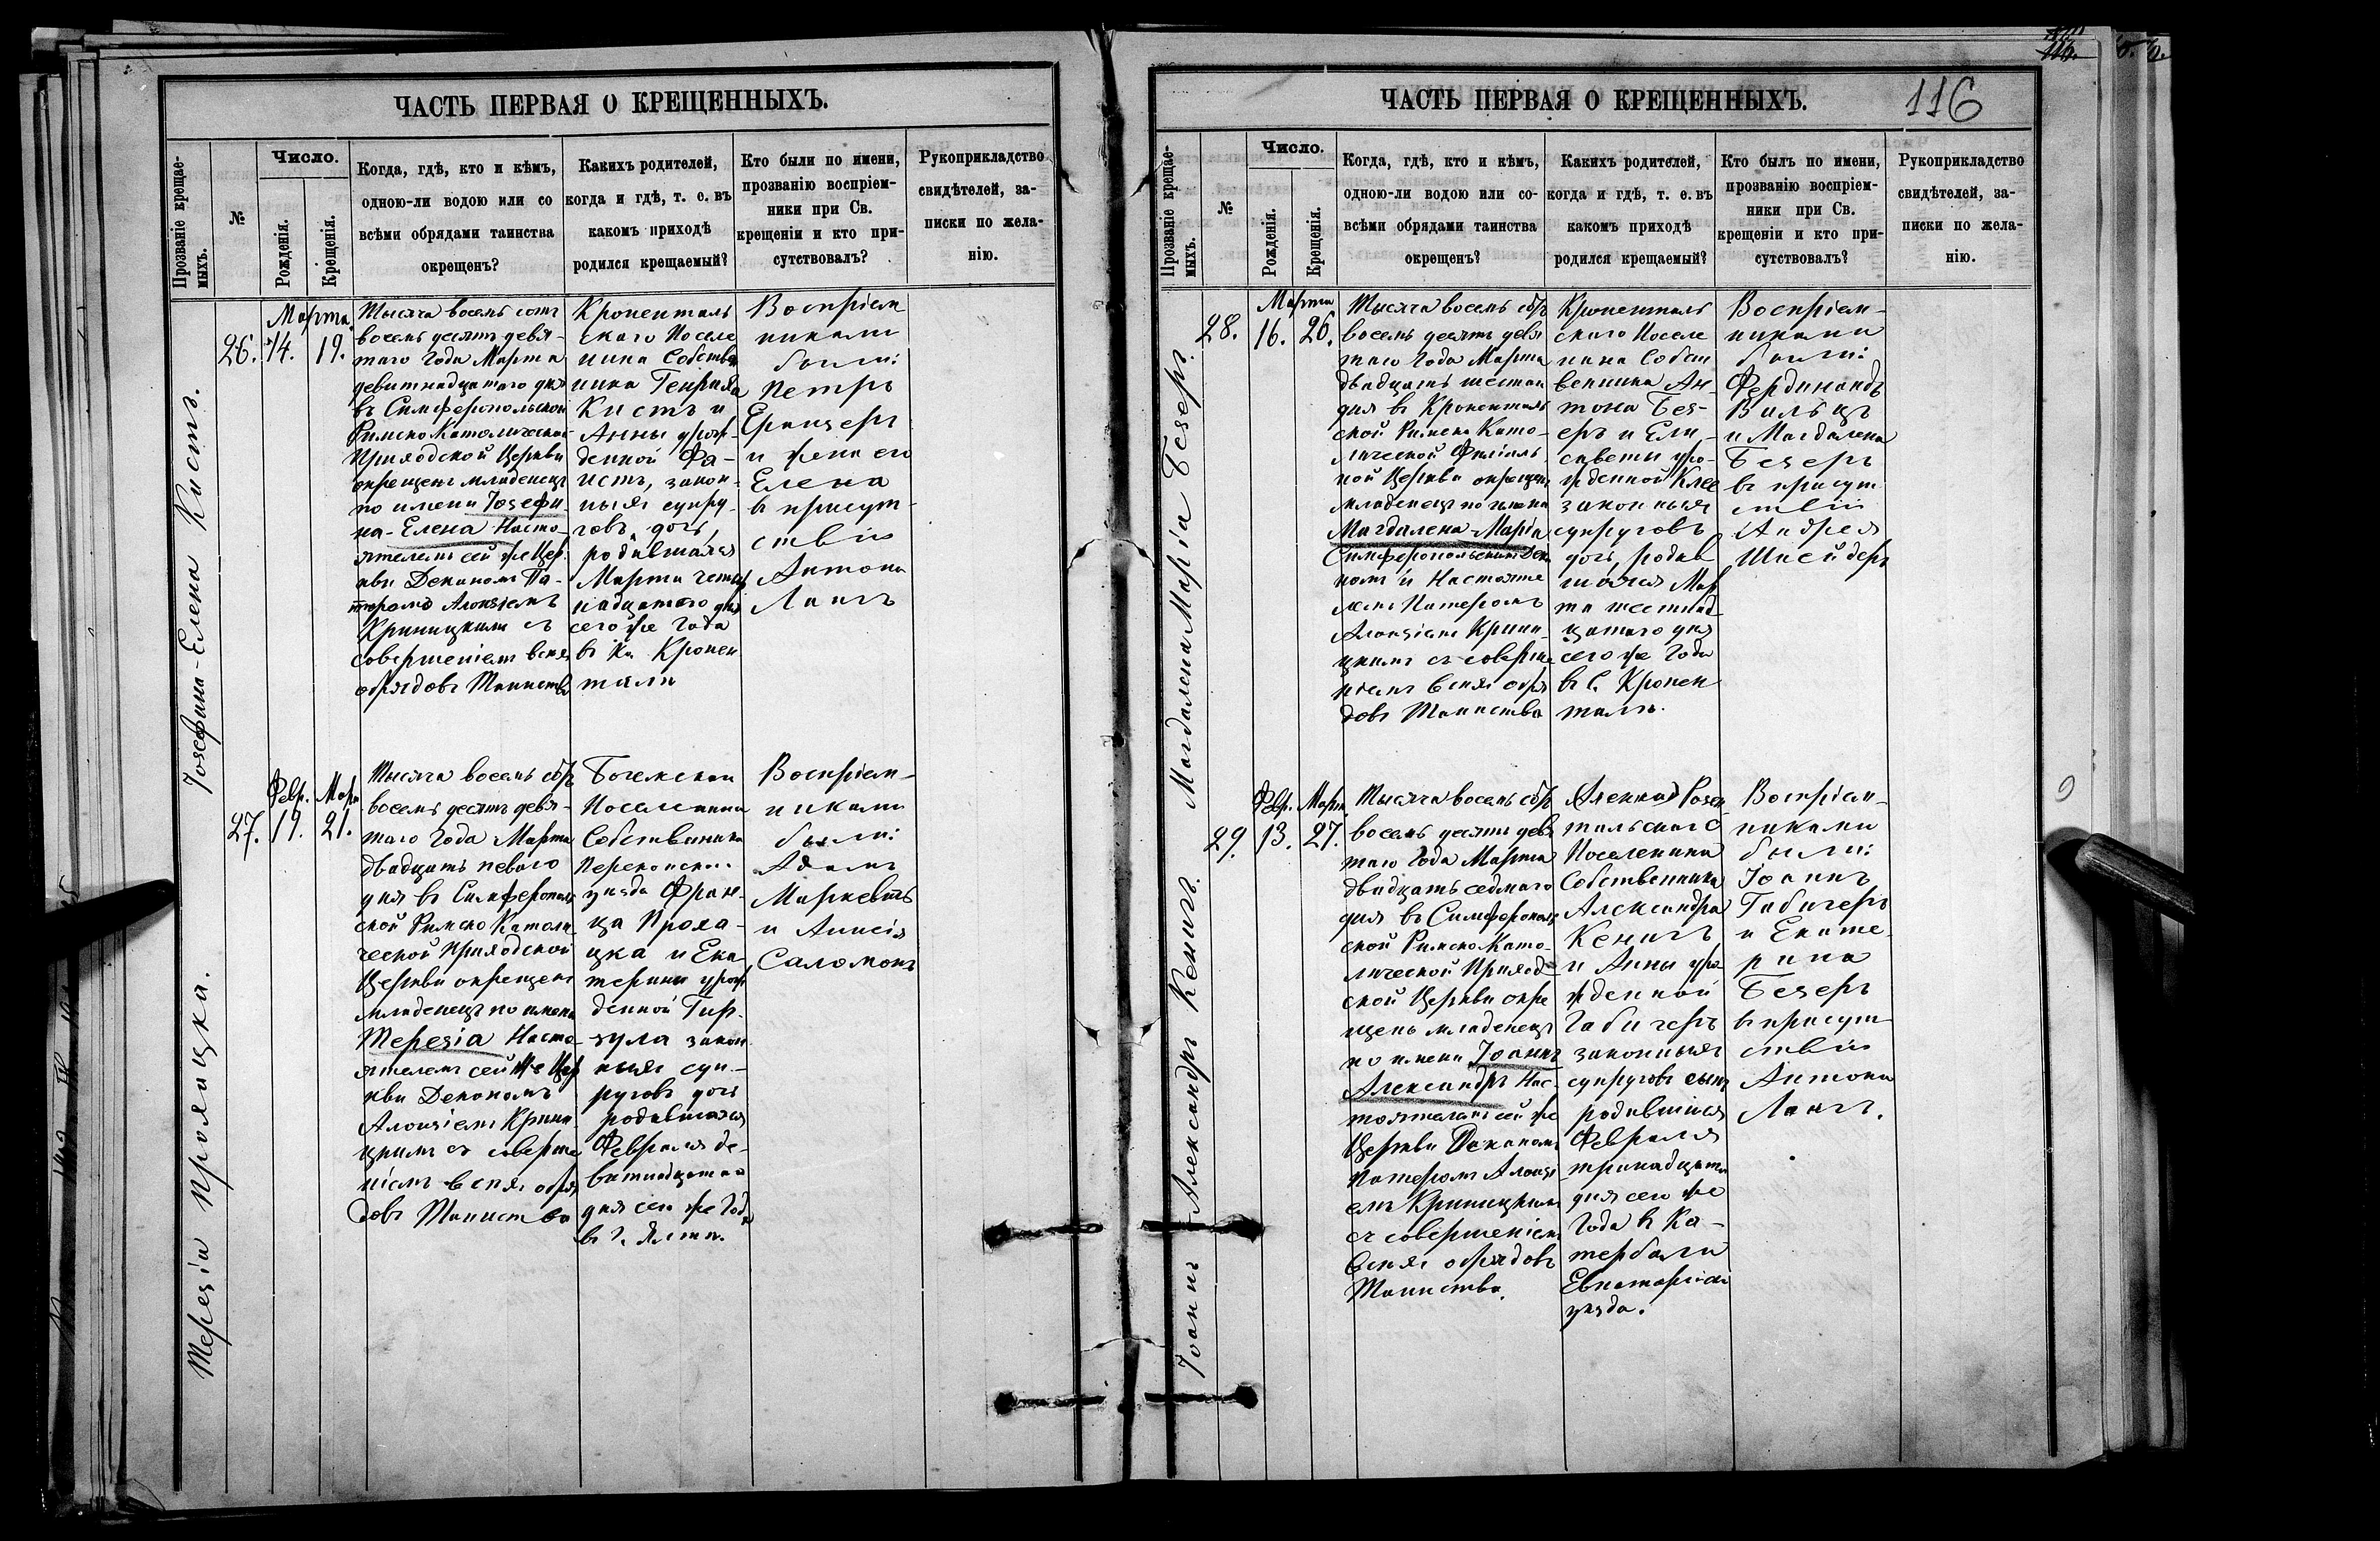 ЧАСТЬ ПЕРВАЯ О КРЕЩЕННЫХЪ.
Прозваніе крещаемыхъ.
№
Число.
Рожденія.
Крещенія.
Когда, гдѣ, кто и кѣмъ,
одною-ли водою или со
всѣми обрядами таинства
окрещенъ?
Какихъ родителей,
когда и гдѣ, т. е. въ
какомъ приходѣ
родился крещаемый?
Кто были по имени,
прозванію воспріем-
ники при Св.
крещеніи и кто при-
сутствовалъ?
Рукоприкладство
свидѣтелей, за-
писки по жела-
нію.
Іозефина-Елена Кистъ.
26.
Марта
14. 19.
Тысяча восемь сотъ
восемьдесятъ девя-
таго Года Марта
девятнадцатаго дня
въ Симферопольской
Римско Католической
Приходской Церкви
окрещенъ младенецъ
по имени Іозефи-
на-Елена Насто-
ятелемъ сей же Цер-
кви Деканомъ Па-
теромъ Алоизіемъ
Криницкимъ съ
совершеніемъ всѣхъ
обрядовъ Таинства
Кроненталь
скаго Поселе
нина Собствен
ника Генриха
Кистъ и
Анны урож-
денной Фа-
истъ, закон-
ныхъ супру-
говъ дочь,
родившаяся
Марта четыр
надцатаго дня
сего же Года
въ Кронен
талѣ
Воспріем
никами
были:
Петръ
Ерицеръ
и жена его
Елена
въ присут-
ствіи
Антона
Лангъ
Терезія Прохацка.
27.
Февр. Мар.
19. 21.
Тысяча восемь сотъ
восемь десятъ девя-
таго Года Марта
двадцать перваго
дня въ Симферополь
ской Римско Католи
ческой Приходской
Церкви окрещенъ
младенецъ по имени
Терезія Насто-
ятелемъ сей же Цер
кви Деканомъ
Алоизіемъ Криниц
цкимъ съ соверше
ніемъ всѣхъ обря
довъ Таинства
Богемскаго
Поселянина
Собственника
Перекопскаго
уѣзда Фран-
ца Проха-
цка и Ека-
терины урож
денной Гир-
зула закон
ныхъ суп-
руговъ дочь
родившаяся
Февраля де-
вятнадцатаго
дня сего же Года
въ г. Ялтѣ.
Воспріем-
никами
были:
Адамъ
Маркевичъ
и Анисія
Саломонъ
ЧАСТЬ ПЕРВАЯ О КРЕЩЕННЫХЪ.
116
Прозваніе крещаемыхъ.
№
Число.
Рожденія.
Крещенія.
Когда, гдѣ, кто и кѣмъ,
одною-ли водою или со-
всѣми обрядами таинства
окрещенъ?
Какихъ родителей,
когда и гдѣ, т. е. въ
какомъ приходѣ
родился крещаемый?
Кто былъ по имени,
прозванію воспріем-
ники при Св.
крещеніи и кто при-
сутствовалъ?
Рукоприкладство
свидѣтелей, за-
писки по жела-
нію.
Магдалена Марія Безеръ.
28.
Марта
16. 26.
Тысяча восемь сотъ
восемь десятъ девя
таго Года Марта
двадцать шестаго
дня въ Кроненталь
ской Римско Като-
лической Филіаль
ной Церкви окрещенъ
младенецъ по имени
Магдалена-Марія
Симферопольскимъ Дека
номъ и Настояте
лемъ Патеромъ
Алоизіемъ Крини
цкимъ съ соверше
ніемъ всѣхъ обря
довъ Таинства
Кроненталь
скаго Поселе
нина Собст
венника Ан
тона Без-
еръ и Ели-
саветы уро-
жденной Клее
законныхъ
супруговъ
дочь, родив
шаяся Мар
та шестнад
цатаго дня
сего же Года
въ с. Кронен
талѣ.
Воспріем-
никами
были:
Фердинандъ
Вильцъ
и Магдалена
Безеръ
въ присут
ствіи
Андрея
Шнейдеръ
Іоаннъ Александръ Кенигъ.
29.
Февр. Март.
13. 27.
Тысяча восемь сотъ
восемь десятъ девя
таго Года Марта
двадцать седьмаго
дня въ Симферополь
ской Римско Като-
лической Приход-
ской Церкви окре
щенъ младенецъ
по имени Іоаннъ
Александръ Нас-
тоятелемъ сей же
Церкви Деканомъ
Патеромъ Алоизі
емъ Криницкимъ
съ совершеніемъ
всѣхъ обрядовъ
Таинства.
Розен
тальскаго
Поселенина
Собственника
Александра
Кенигъ
и Анны уро
жденной
Габичеръ
законныхъ
супруговъ сынъ
родившійся
Февраля
тринадцатаго
дня сего же
Года въ Ка-
тербали
Евпаторійск
уѣзда.
Воспріем-
никами
были:
Іоаннъ
Габичеръ
и Екате-
рина
Безеръ
въ присут-
ствіи
Антона
Лангъ.